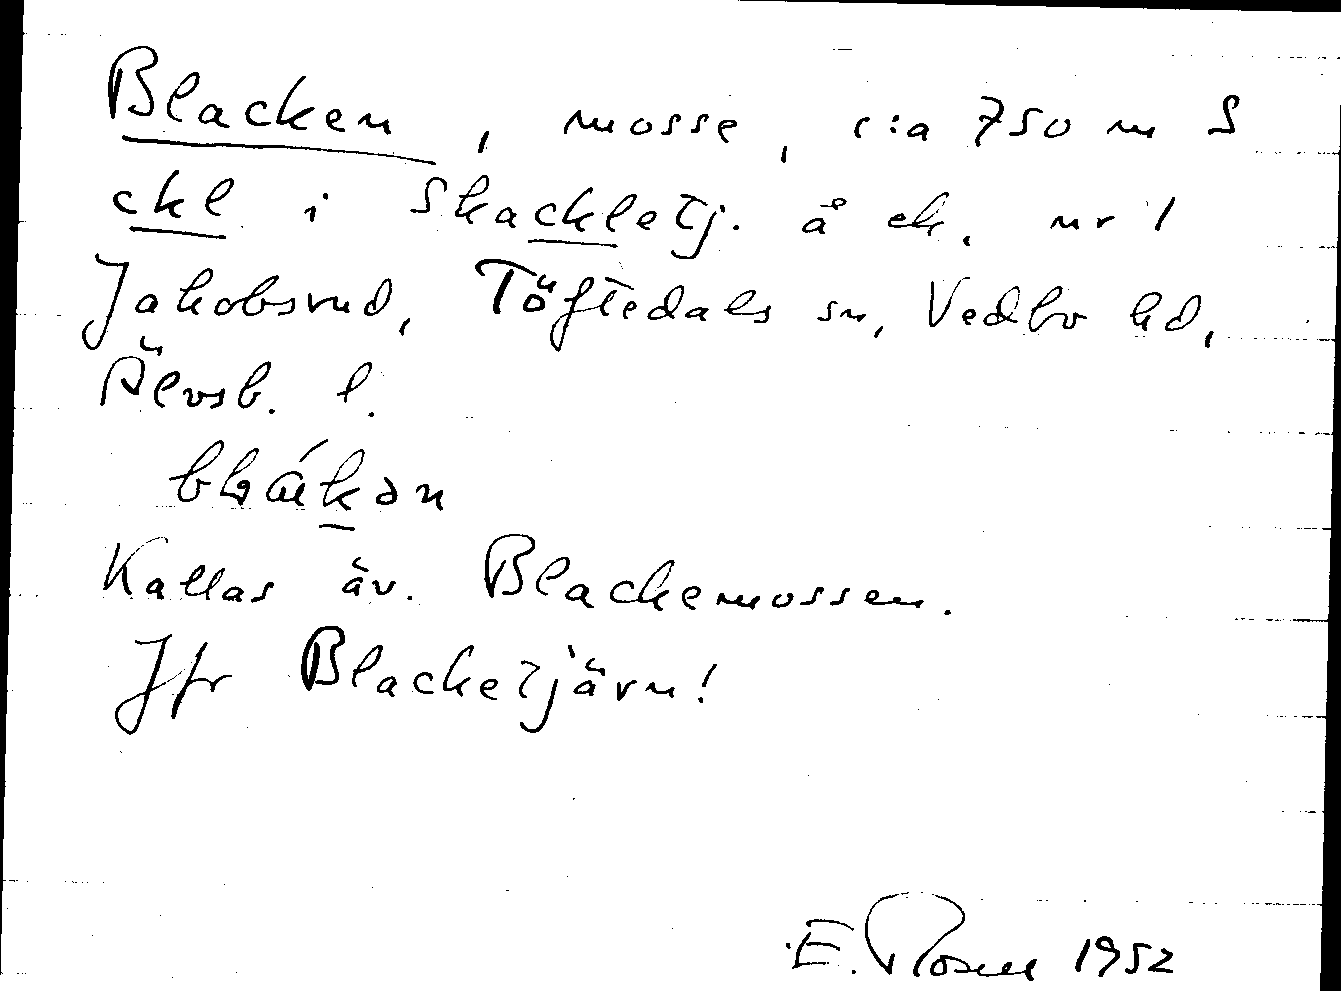 Blacken, mosse, c:a 750 m S
ckl i Skackletj. å ek. nr 1
Jakobsrud, Töftedals sn, Vedbo hd,
Älvsb. l.
Kallas äv. Blackemossen.
Jfr Blacketjärn!
E. Rosell 1952